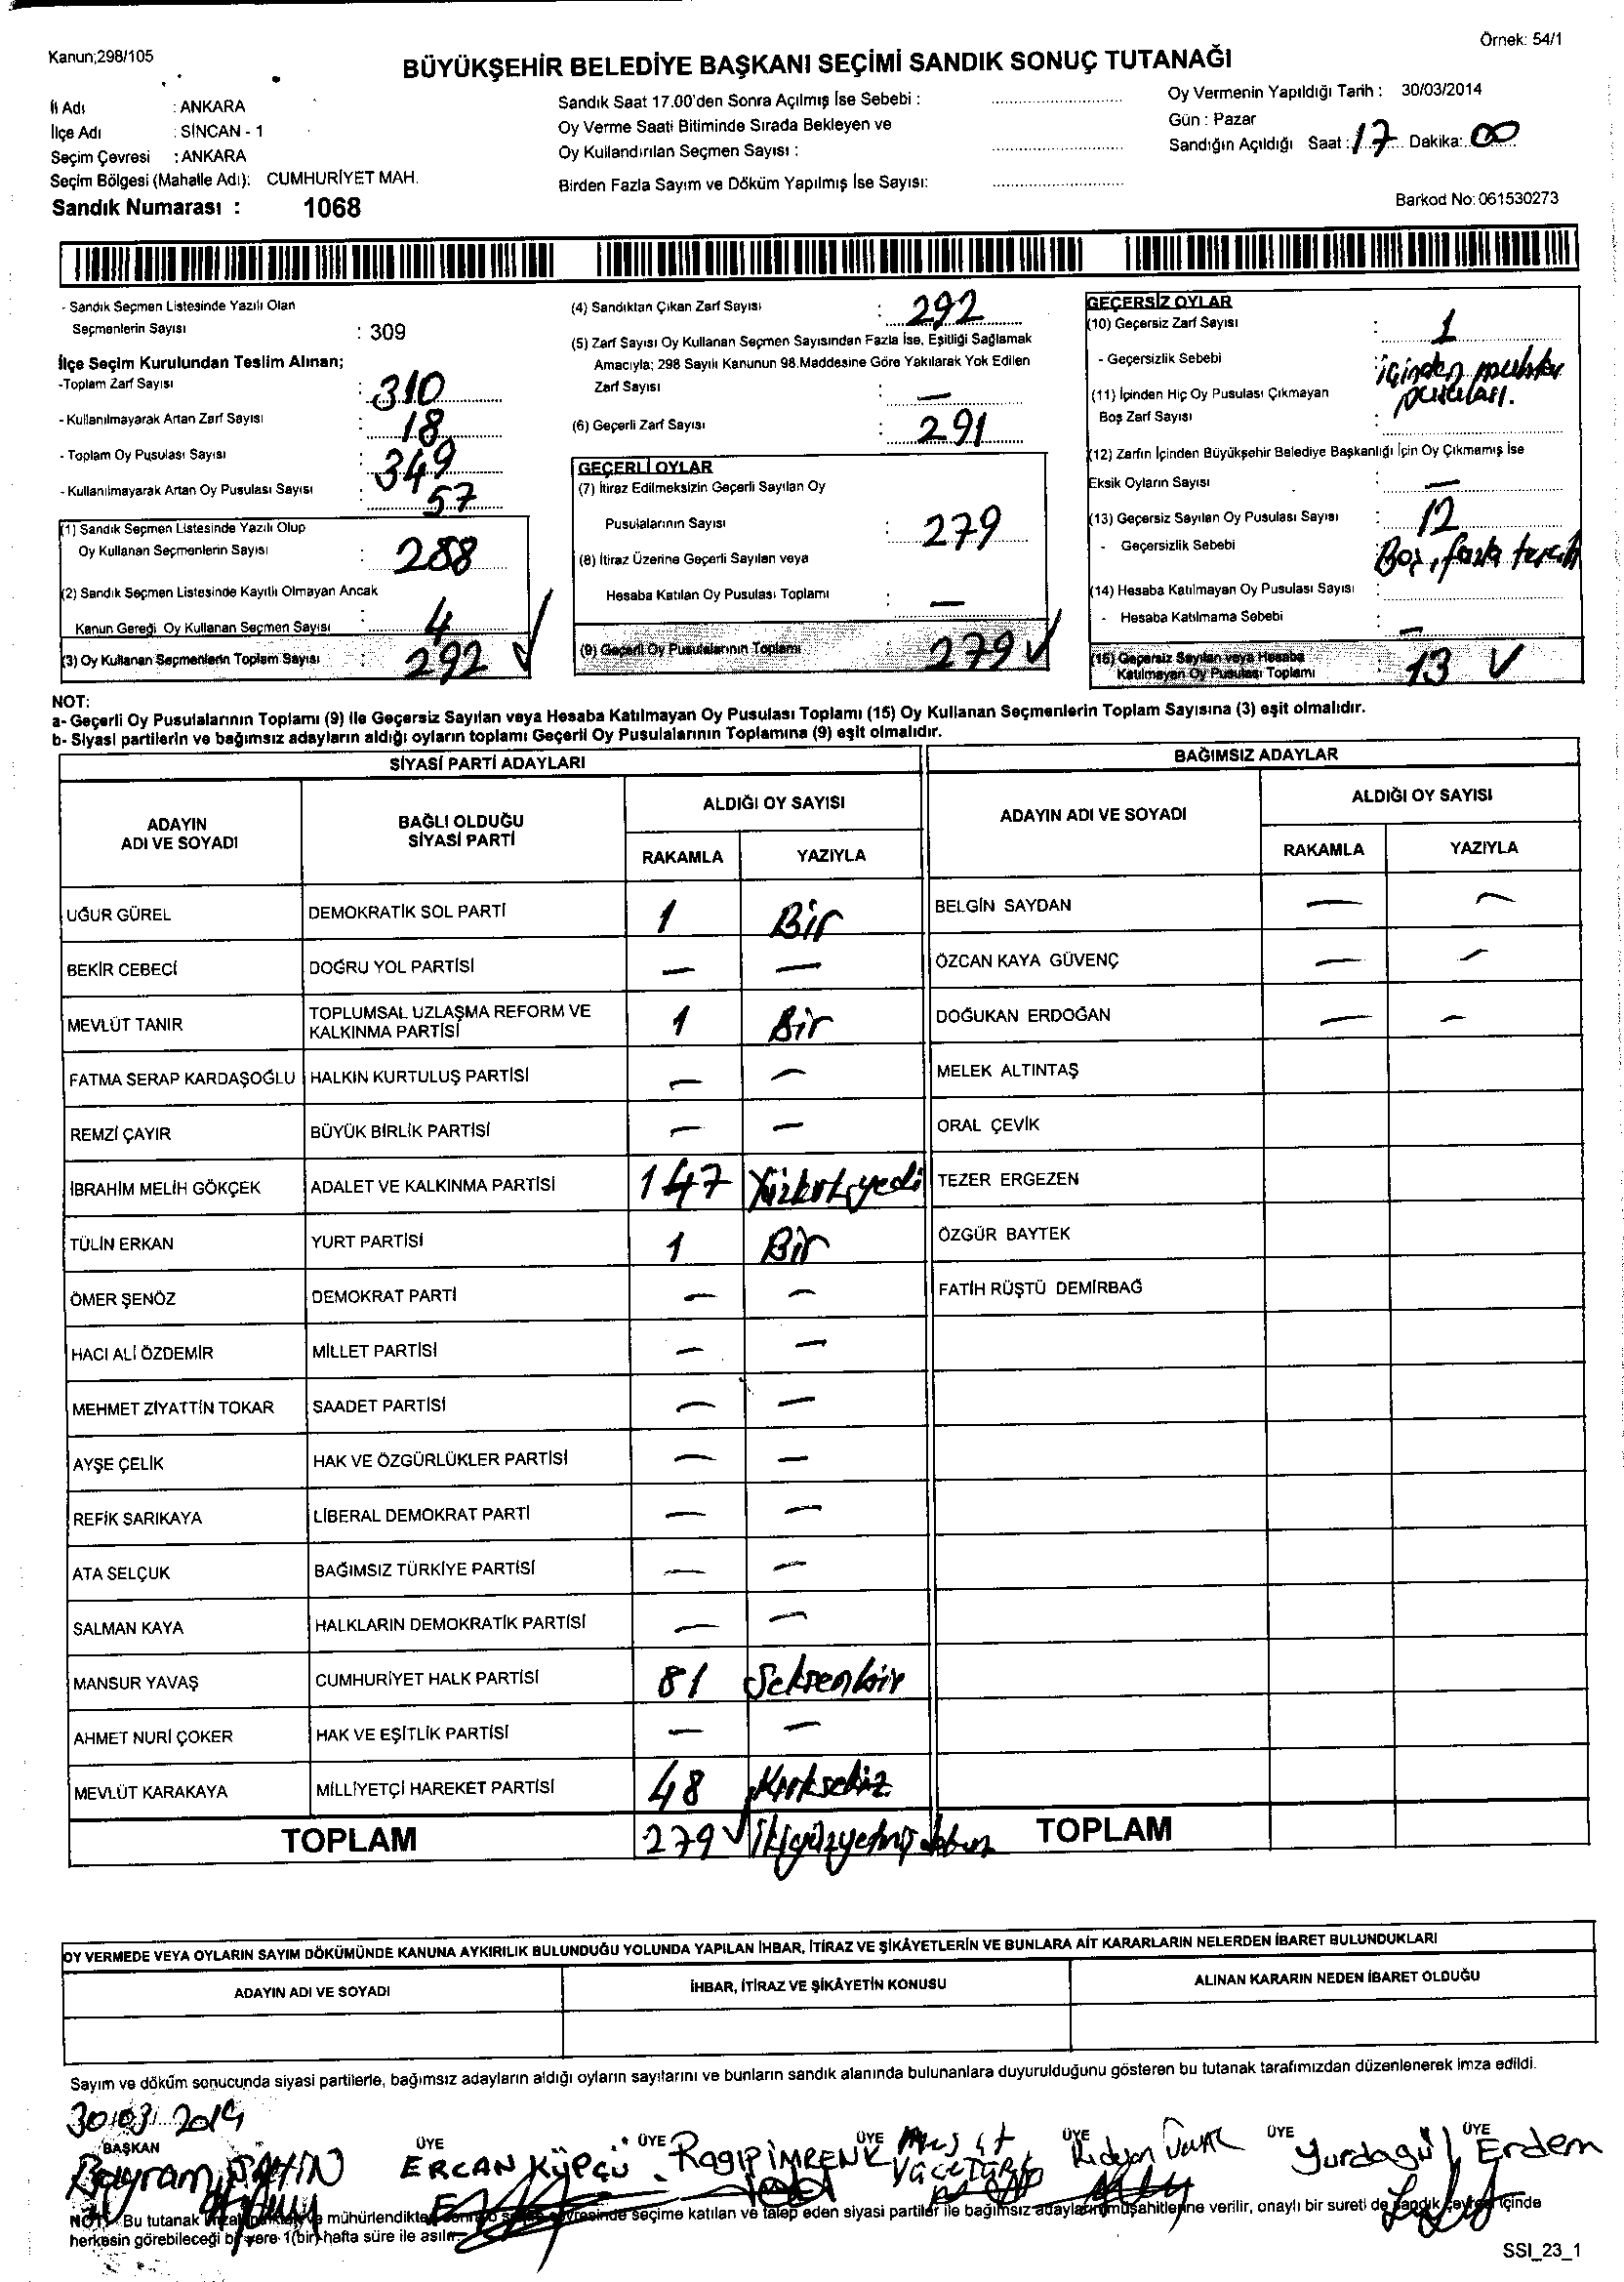 Kanun;298/105
Örnek: 54/1
BÜYÜKŞEHİR BELEDİYE BAŞKANI SEÇİMİ SANDIK SONUÇ TUTANAĞI
İl Adı : ANKARA
İlçe Adı : SİNCAN - 1
Seçim Çevresi : ANKARA
Seçim Bölgesi (Mahalle Adı): CUMHURİYET MAH.
Sandık Numarası : 1068
Sandık Saat 17.00'den Sonra Açılmış İse Sebebi :
Oy Verme Saati Bitiminde Sırada Bekleyen ve
Oy Kullandırılan Seçmen Sayısı :
Birden Fazla Sayım ve Döküm Yapılmış İse Sayısı:
Oy Vermenin Yapıldığı Tarih : 30/03/2014
Gün : Pazar
Sandığın Açıldığı Saat : 17 Dakika: 00
Barkod No: 061530273
- Sandık Seçmen Listesinde Yazılı Olan
Seçmenlerin Sayısı : 309
İlçe Seçim Kurulundan Teslim Alınan;
-Toplam Zarf Sayısı : 310
- Kullanılmayarak Artan Zarf Sayısı : 18
- Toplam Oy Pusulası Sayısı : 349
- Kullanılmayarak Artan Oy Pusulası Sayısı 57
(1) Sandık Seçmen Listesinde Yazılı Olup
Oy Kullanan Seçmenlerin Sayısı : 288
(2) Sandık Seçmen Listesinde Kayıtlı Olmayan Ancak
Kanun Gereği Oy Kullanan Seçmen Sayısı : 4
(3) Oy Kullanan Seçmenlerin Toplam Sayısı : 292 ✓
(4) Sandıktan Çıkan Zarf Sayısı : 292
(5) Zarf Sayısı Oy Kullanan Seçmen Sayısından Fazla İse, Eşitliği Sağlamak
Amacıyla; 298 Sayılı Kanunun 98.Maddesine Göre Yakılarak Yok Edilen
Zarf Sayısı : —
(6) Geçerli Zarf Sayısı : 291
GEÇERLİ OYLAR
(7) İtiraz Edilmeksizin Geçerli Sayılan Oy
Pusulalarının Sayısı : 279
(8) İtiraz Üzerine Geçerli Sayılan veya
Hesaba Katılan Oy Pusulası Toplamı : —
(9) Geçerli Oy Pusulalarının Toplamı 279 ✓
GEÇERSİZ OYLAR
(10) Geçersiz Zarf Sayısı : 1
- Geçersizlik Sebebi : içinden muhtar
pusulası.
(11) İçinden Hiç Oy Pusulası Çıkmayan
Boş Zarf Sayısı :
(12) Zarfın İçinden Büyükşehir Belediye Başkanlığı İçin Oy Çıkmamış İse
Eksik Oyların Sayısı : —
(13) Geçersiz Sayılan Oy Pusulası Sayısı : 12
- Geçersizlik Sebebi : Boş, fazla tercih
(14) Hesaba Katılmayan Oy Pusulası Sayısı :
- Hesaba Katılmama Sebebi : —
(15) Geçersiz Sayılan veya Hesaba
Katılmayan Oy Pusulası Toplamı 13 ✓
NOT:
a- Geçerli Oy Pusulalarının Toplamı (9) ile Geçersiz Sayılan veya Hesaba Katılmayan Oy Pusulası Toplamı (15) Oy Kullanan Seçmenlerin Toplam Sayısına (3) eşit olmalıdır.
b- Siyasi partilerin ve bağımsız adayların aldığı oyların toplamı Geçerli Oy Pusulalarının Toplamına (9) eşit olmalıdır.
SİYASİ PARTİ ADAYLARI
ADAYIN
ADI VE SOYADI
BAĞLI OLDUĞU
SİYASİ PARTİ
ALDIĞI OY SAYISI
RAKAMLA YAZIYLA
UĞUR GÜREL DEMOKRATİK SOL PARTİ 1 Bir
BEKİR CEBECİ DOĞRU YOL PARTİSİ — —
MEVLÜT TANIR TOPLUMSAL UZLAŞMA REFORM VE
KALKINMA PARTİSİ 1 Bir
FATMA SERAP KARDAŞOĞLU HALKIN KURTULUŞ PARTİSİ — —
REMZİ ÇAYIR BÜYÜK BİRLİK PARTİSİ — —
İBRAHİM MELİH GÖKÇEK ADALET VE KALKINMA PARTİSİ 147 Yüzkırkyedi
TÜLİN ERKAN YURT PARTİSİ 1 Bir
ÖMER ŞENÖZ DEMOKRAT PARTİ — —
HACI ALİ ÖZDEMİR MİLLET PARTİSİ — —
MEHMET ZİYATTİN TOKAR SAADET PARTİSİ — —
AYŞE ÇELİK HAK VE ÖZGÜRLÜKLER PARTİSİ — —
REFİK SARIKAYA LİBERAL DEMOKRAT PARTİ — —
ATA SELÇUK BAĞIMSIZ TÜRKİYE PARTİSİ — —
SALMAN KAYA HALKLARIN DEMOKRATİK PARTİSİ — —
MANSUR YAVAŞ CUMHURİYET HALK PARTİSİ 81 Seksenbir
AHMET NURİ ÇOKER HAK VE EŞİTLİK PARTİSİ — —
MEVLÜT KARAKAYA MİLLİYETÇİ HAREKET PARTİSİ 48 Kırksekiz
TOPLAM 279 ✓ İkiyüzyetmişdokuz
BAĞIMSIZ ADAYLAR
ADAYIN ADI VE SOYADI
ALDIĞI OY SAYISI
RAKAMLA YAZIYLA
BELGİN SAYDAN — —
ÖZCAN KAYA GÜVENÇ — —
DOĞUKAN ERDOĞAN — —
MELEK ALTINTAŞ
ORAL ÇEVİK
TEZER ERGEZEN
ÖZGÜR BAYTEK
FATİH RÜŞTÜ DEMİRBAĞ
TOPLAM
OY VERMEDE VEYA OYLARIN SAYIM DÖKÜMÜNDE KANUNA AYKIRILIK BULUNDUĞU YOLUNDA YAPILAN İHBAR, İTİRAZ VE ŞİKÂYETLERİN VE BUNLARA AİT KARARLARIN NELERDEN İBARET BULUNDUKLARI
ADAYIN ADI VE SOYADI İHBAR, İTİRAZ VE ŞİKÂYETİN KONUSU ALINAN KARARIN NEDEN İBARET OLDUĞU
Sayım ve döküm sonucunda siyasi partilerle, bağımsız adayların aldığı oyların sayılarını ve bunların sandık alanında bulunanlara duyurulduğunu gösteren bu tutanak tarafımızdan düzenlenerek imza edildi.
30/03/2014
BAŞKAN ÜYE ÜYE ÜYE ÜYE ÜYE ÜYE
Bayram ŞAHİN ERCAN KÜPÇÜ Ragıp İMRENK Yurdagül Erdem
NOT: Bu tutanak imzalandıktan ve mühürlendikten sonra sandık çevresinde seçime katılan ve talep eden siyasi partiler ile bağımsız adayların müşahitlerine verilir, onaylı bir sureti de sandık çevresi içinde
herkesin görebileceği bir yere 1(bir) hafta süre ile asılır.
SSI_23_1